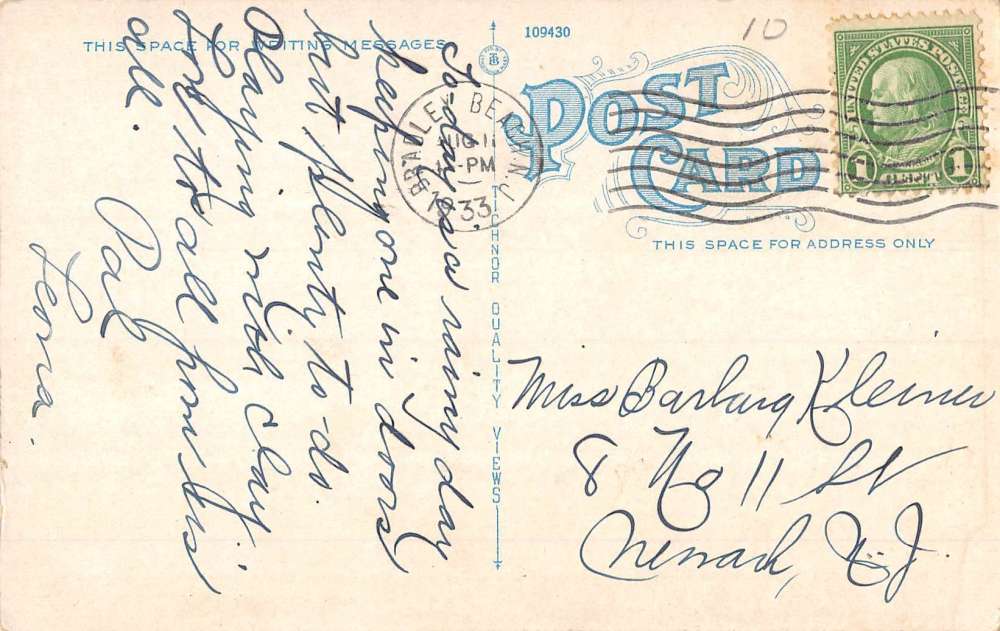 THIS SPACE FOR WRITING MESSAGES
To-day is a rainy day
keeping one in doors
but plenty to do.
Playing with clay.
to all from
all.
Pal
Leona.
109430
TICHNOR QUALITY VIEWS
10
POST
CARD
THIS SPACE FOR ADDRESS ONLY
BRADLEY BEACH N.J.
AUG 11
-PM
1933
UNITED STATES POSTAGE
1 1
Miss Barbara Kleiner
8 No 11 St
Newark, N.J.